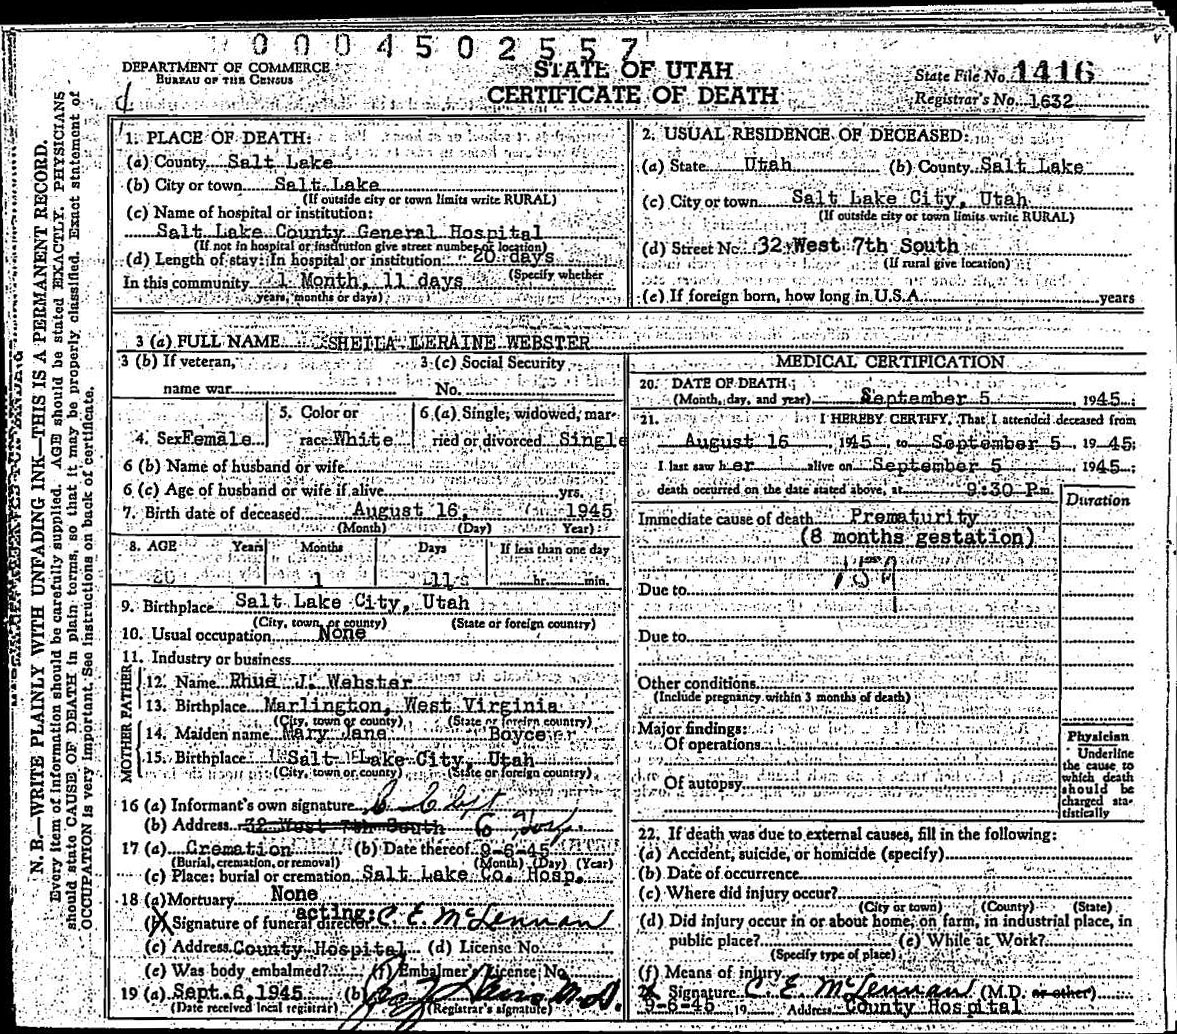 0004502557
DEPARTMENT OF COMMERCE
BUREAU OF THE CENSUS
STATE OF UTAH
CERTIFICATE OF DEATH
State File No. 1416
Registrar's No. 1632
N. B.—WRITE PLAINLY WITH UNFADING INK—THIS IS A PERMANENT RECORD.
Every item of information should be carefully supplied. AGE should be stated EXACTLY. PHYSICIANS
should state CAUSE OF DEATH in plain terms, so that it may be properly classified. Exact statement of
OCCUPATION is very important. See instructions on back of certificate.
1. PLACE OF DEATH:
(a) County Salt Lake
(b) City or town Salt Lake
(If outside city or town limits write RURAL)
(c) Name of hospital or institution:
Salt Lake County General Hospital
(If not in hospital or institution give street number or location)
(d) Length of stay: In hospital or institution 20 days
(Specify whether
In this community 1 Month, 11 days
years, months or days)
2. USUAL RESIDENCE OF DECEASED:
(a) State Utah (b) County Salt Lake
(c) City or town Salt Lake City, Utah
(If outside city or town limits write RURAL)
(d) Street No. 32 West 7th South
(If rural give location)
(e) If foreign born, how long in U.S.A. years
3 (a) FULL NAME SHEILA LERAINE WEBSTER
3 (b) If veteran, 3 (c) Social Security
name war No.
4. Sex Female 5. Color or race White 6 (a) Single, widowed, married or divorced Single
6 (b) Name of husband or wife
6 (c) Age of husband or wife if alive yrs.
7. Birth date of deceased August 16, 1945
(Month) (Day) Year)
8. AGE Years Months Days If less than one day
20 1 11 hr. min.
9. Birthplace Salt Lake City, Utah
(City, town, or county) (State or foreign country)
10. Usual occupation None
11. Industry or business
FATHER
12. Name Rhue J. Webster
13. Birthplace Marlington, West Virginia
(City, town or county) (State or foreign country)
MOTHER
14. Maiden name Mary Jane Boyce
15. Birthplace Salt Lake City, Utah
(City, town or county) (State or foreign country)
16 (a) Informant's own signature
(b) Address 32 West 7th South
17 (a) Cremation (b) Date thereof 9-6-45
(Burial, cremation, or removal) (Month) (Day) (Year)
(c) Place: burial or cremation Salt Lake Co. Hosp.
18 (a) Mortuary None
(b) Signature of funeral director acting: C. E. McLennan
(c) Address County Hospital (d) License No.
(e) Was body embalmed? (f) Embalmer's License No.
19 (a) Sept. 6, 1945 (b) M.D.
(Date received local registrar) (Registrar's signature)
MEDICAL CERTIFICATION
20. DATE OF DEATH
(Month, day, and year) September 5, 1945
21. I HEREBY CERTIFY, That I attended deceased from
August 16 1945 to September 5 1945
I last saw her alive on September 5 1945
death occurred on the date stated above, at 9:30 P.m.
Duration
Immediate cause of death Prematurity
(8 months gestation)
159
Due to
Due to
Other conditions
(Include pregnancy within 3 months of death)
Major findings:
Of operations
Of autopsy
Physician
Underline
the cause to
which death
should be
charged sta-
tistically
22. If death was due to external causes, fill in the following:
(a) Accident, suicide, or homicide (specify)
(b) Date of occurrence
(c) Where did injury occur?
(City or town) (County) (State)
(d) Did injury occur in or about home, on farm, in industrial place, in
public place? (e) While at Work?
(Specify type of place)
(f) Means of injury
Signature C. E. McLennan (M.D. or other)
9-6-45 19 Address County Hospital